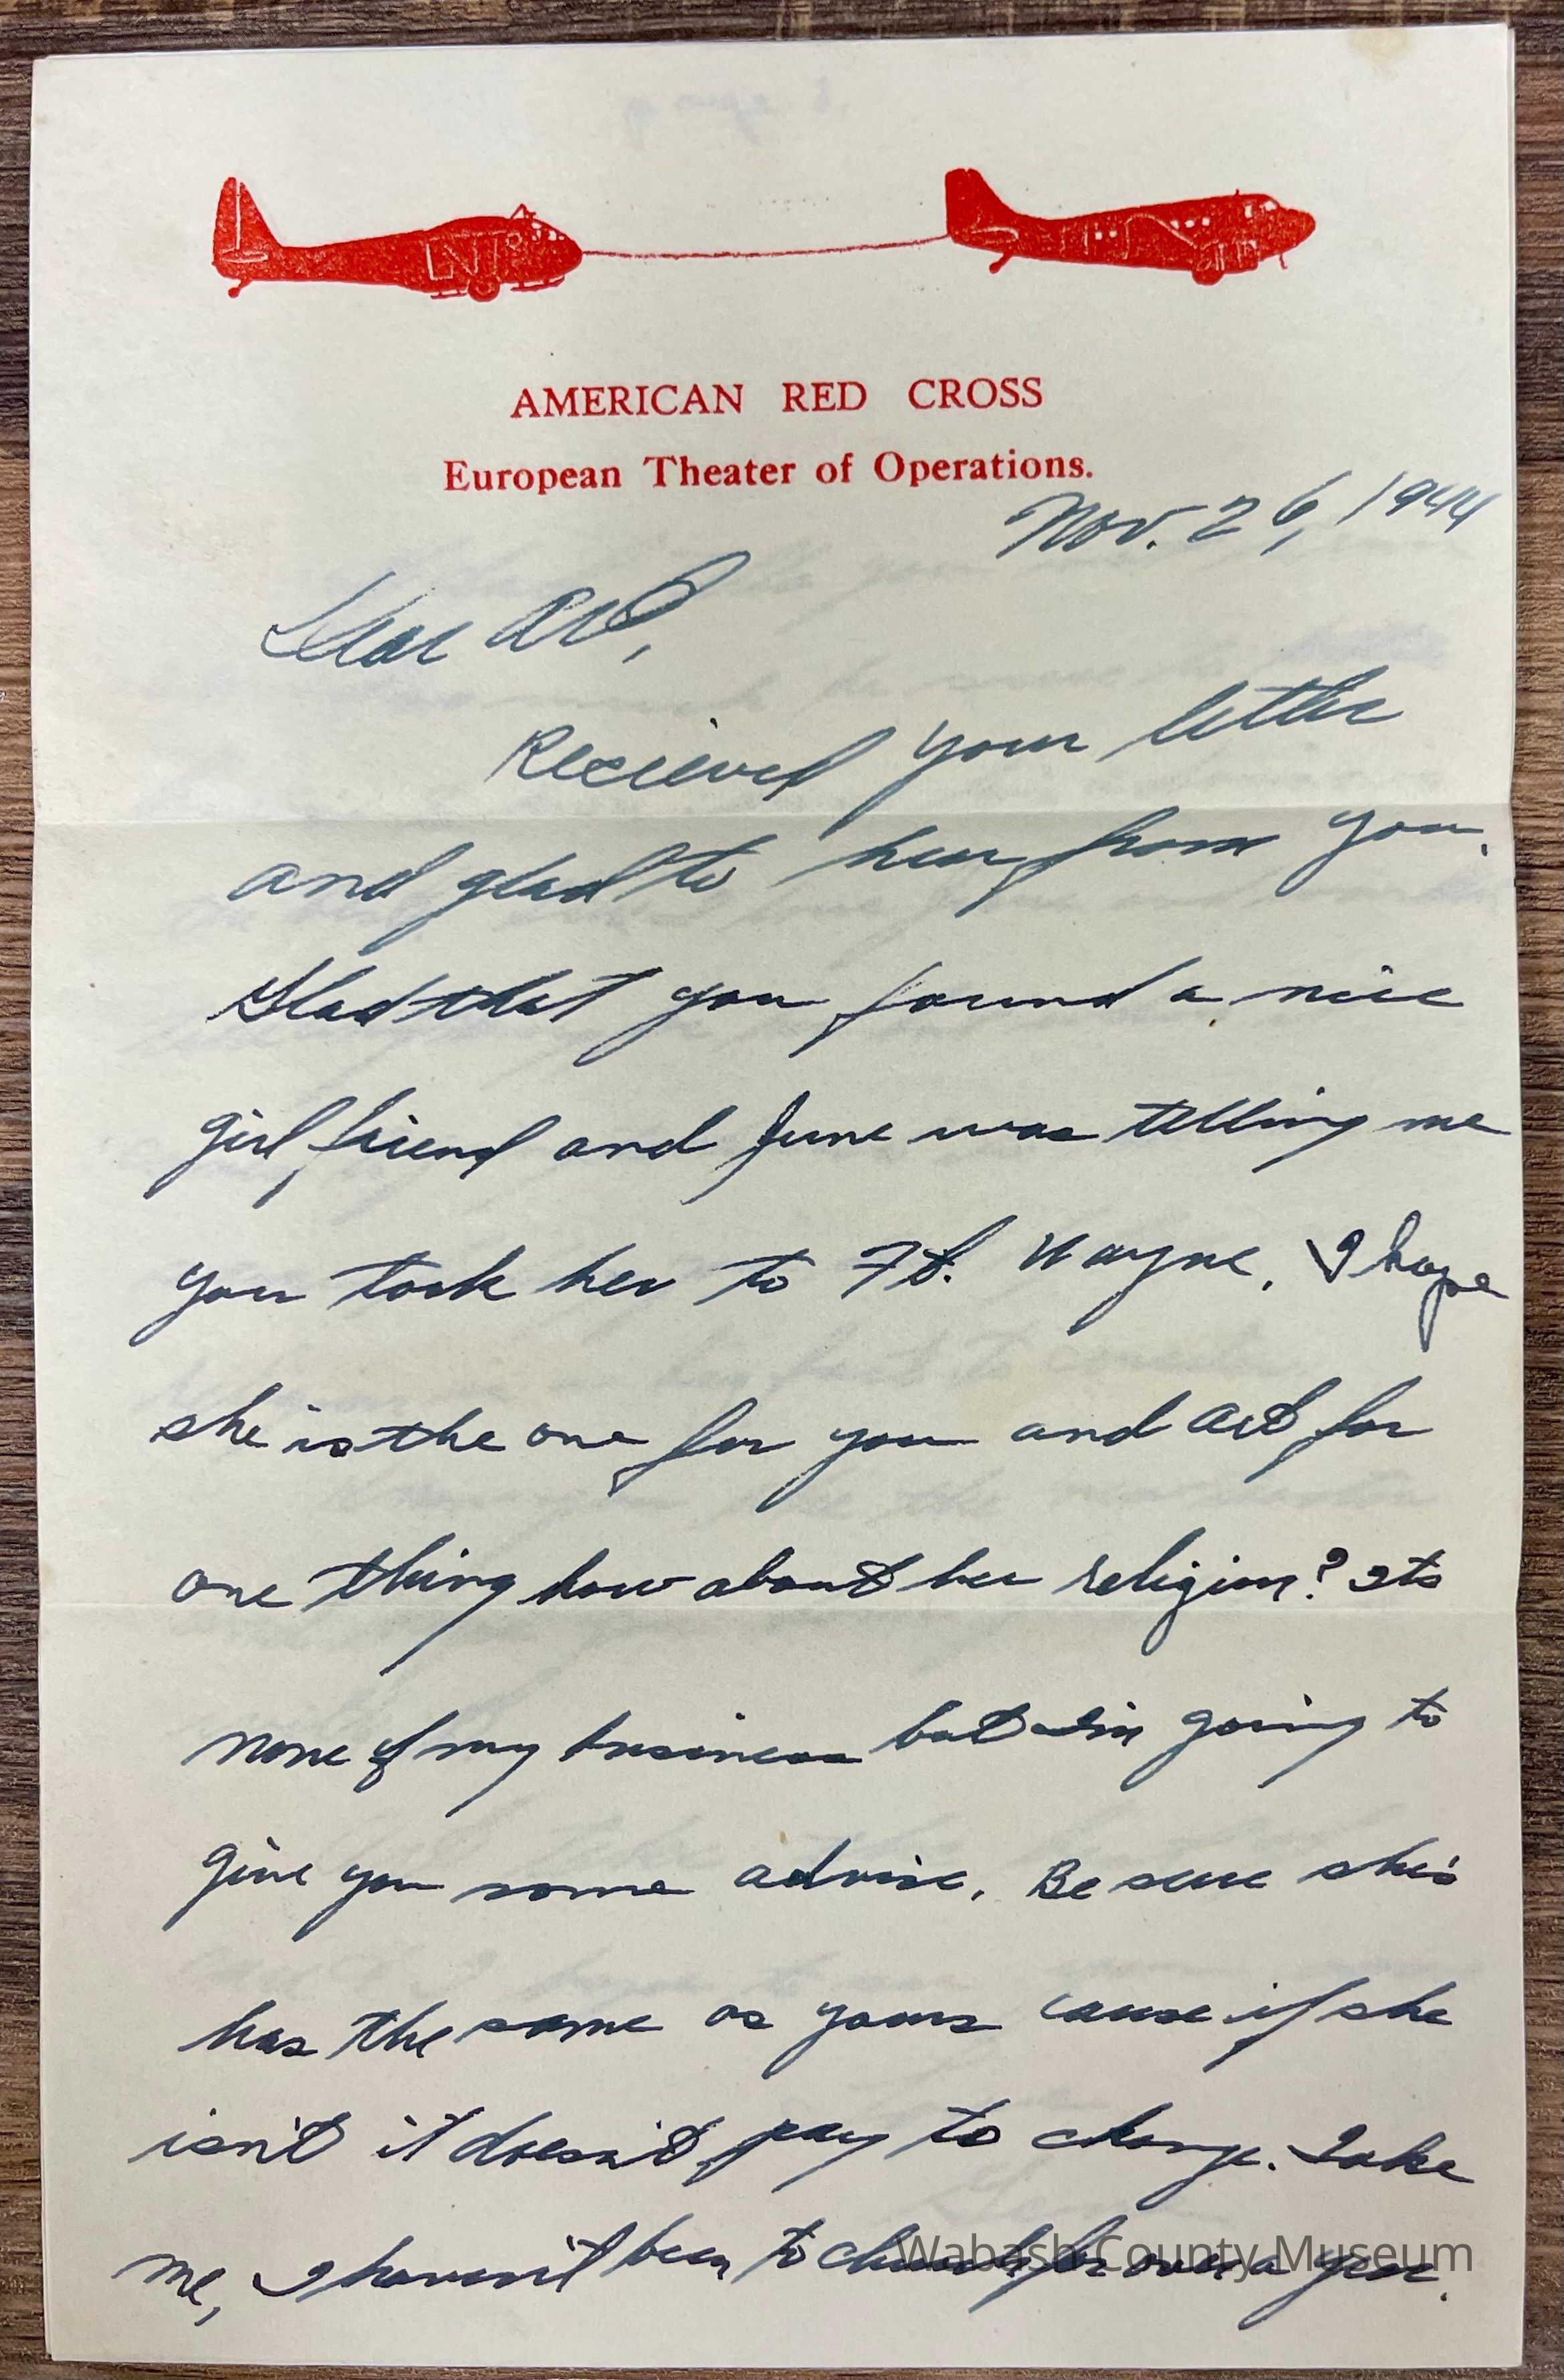 AMERICAN RED CROSS
European Theater of Operations.
Nov. 26, 1944
Dear Art,
Recieved your letter
and glad to hear from you.
Glad that you found a nice
girl friend and June was telling me
you took her to Ft. Wayne. I hope
she is the one for you and Art for
one thing how about her religion? Its
none of my business but I'm going to
give you some advise. Be sure she's
has the same as yours cause if she
isn't it doesn't pay to change. Take
me, I haven't been to church for over a year.
Wabash County Museum